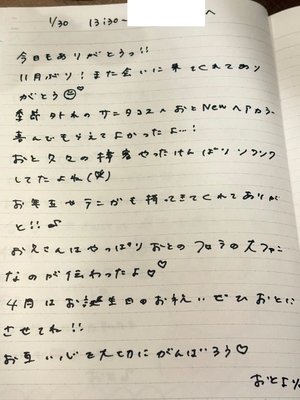 1/30 13:30~ へ
今日もありがとうっ!!
11月ぶり!また会いに来てくれてあり
がとう☺♡
季節外れのサンタコスへおとNewヘアカラー
喜んでもらえてよかったよ…!
おと久々の接客やったけんばりソワソワ
してたよね(笑)
お年玉やテンがも持ってきてくれてありが
と!!♪
お兄さんはやっぱりおとのフロラの大ファン
なのが伝わったよ♡♡
4月はお誕生日のお祝いぜひおとに
させてね!!
お互い心を大切にがんばろう♡
おとより